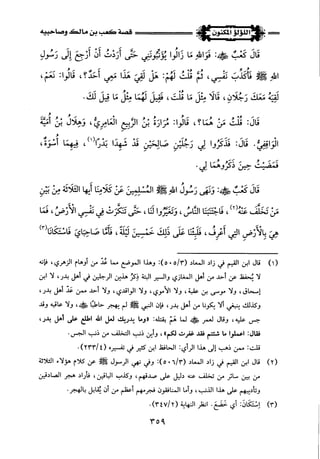 اللؤلؤ المكنون
قصة كعب بن مالك وصاحبيه
قَالَ كَعْبٌ ﷺ: فَوَاللهِ مَا زَالُوا يُؤَنِّبُونِي حَتَّى أَرَدْتُ أَنْ أَرْجِعَ إِلَى رَسُولِ
اللهِ ﷺ فَأُكَذِّبَ نَفْسِي، ثُمَّ قُلْتُ لَهُمْ: هَلْ لَقِيَ هَذَا مَعِي أَحَدٌ؟، قَالُوا: نَعَمْ،
لَقِيَهُ مَعَكَ رَجُلَانِ، قَالَا مِثْلَ مَا قُلْتَ، فَقِيلَ لَهُمَا مِثْلُ مَا قِيلَ لَكَ.
قَالَ: قُلْتُ: مَنْ هُمَا؟، قَالُوا: مُرَارَةُ بْنُ الرَّبِيعِ الْعَامِرِيُّ، وَهِلَالُ بْنُ أُمَيَّةَ
الْوَاقِفِيُّ. قَالَ: فَذَكَرُوا لِي رَجُلَيْنِ صَالِحَيْنِ قَدْ شَهِدَا بَدْرًا(١)، فِيهِمَا أُسْوَةٌ،
فَمَضَيْتُ حِينَ ذَكَرُوهُمَا لِي.
قَالَ كَعْبٌ ﷺ: وَنَهَى رَسُولُ اللهِ ﷺ الْمُسْلِمِينَ عَنْ كَلَامِنَا أَيُّهَا الثَّلَاثَةُ مِنْ بَيْنِ
مَنْ تَخَلَّفَ عَنْهُ(٢)، فَاجْتَنَبَنَا النَّاسُ، وَتَغَيَّرُوا لَنَا، حَتَّى تَنَكَّرَتْ فِي نَفْسِي الْأَرْضُ، فَمَا
هِيَ بِالْأَرْضِ الَّتِي أَعْرِفُ، فَلَبِثْنَا عَلَى ذَلِكَ خَمْسِينَ لَيْلَةً، فَأَمَّا صَاحِبَايَ فَاسْتَكَانَا(٣)
(١) قال ابن القيم في زاد المعاد (٥٠٥/٣): وهذا الموضع مما عُدَّ من أوهام الزهري، فإنه
لا يُحفظ عن أحد من أهل المغازي والسير البتة ذِكرُ هذين الرجلين في أهل بدر، لا ابن
إسحاق، ولا موسى بن عقبة، ولا الأموي، ولا الواقدي، ولا أحد ممن عدَّ أهل بدر،
وكذلك ينبغي ألا يكونا من أهل بدر، فإن النبي ﷺ لم يهجر حاطبًا، ولا عاقبه وقد
جس عليه، وقال لعمر لما هَمَّ بقتله: «وما يدريك لعل الله اطلع على أهل بدر،
فقال: اعملوا ما شئتم فقد غفرت لكم»، وأين ذنب التخلف من ذنب الجس.
قلت: ممن ذهب إلى هذا الرأي: الحافظ ابن كثير في تفسيره (٢٣٣/٤).
(٢) قال ابن القيم في زاد المعاد (٥٠٦/٣): وفي نهي الرسول ﷺ عن كلام هؤلاء الثلاثة
من بين سائر من تخلف عنه دليل على صدقهم، وكذب الباقين، فأراد هجر الصادقين
وتأديبهم على هذا الذنب، وأما المنافقون فجرمهم أعظم من أن يُقابل بالهجر.
(٣) اسْتَكَانَ: أي خضع. انظر النهاية (٣٤٧/٢).
٣٥٩